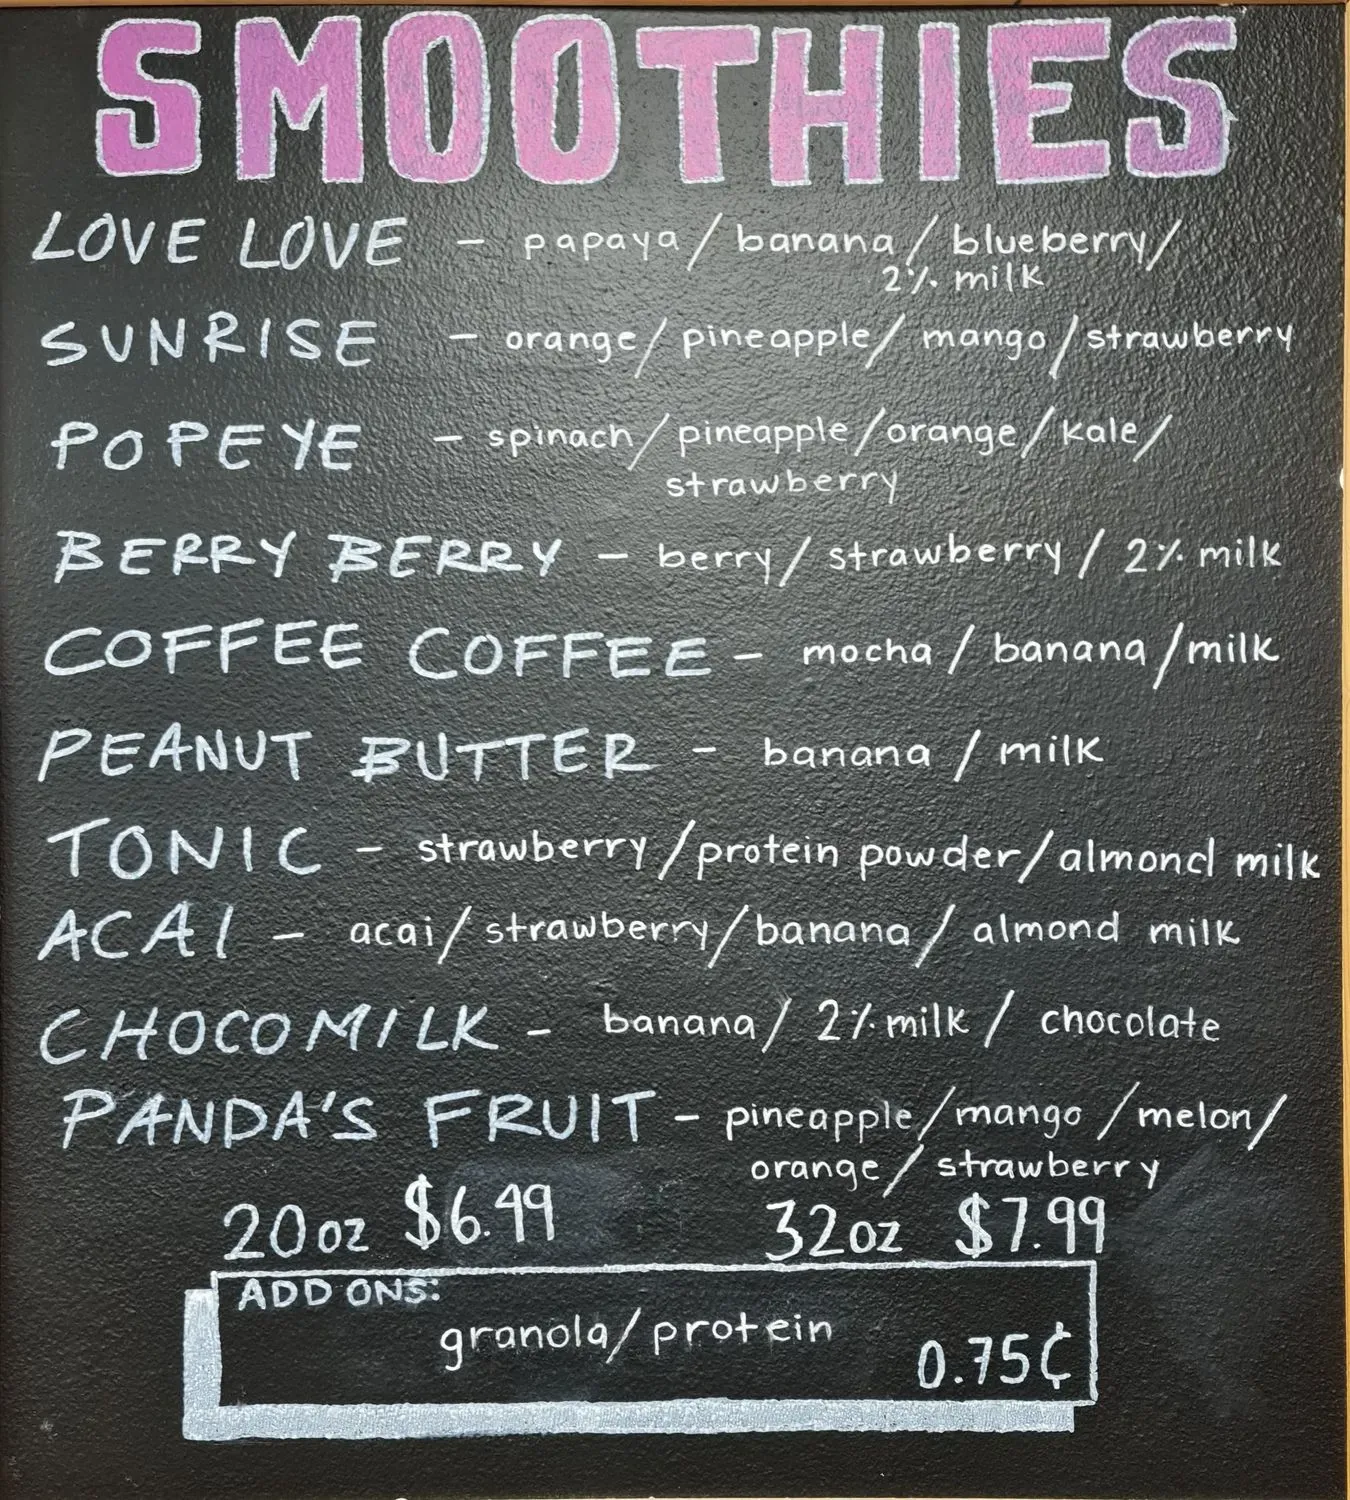 SMOOTHIES
LOVE LOVE - papaya / banana / blueberry /
2% milk
SUNRISE - orange / pineapple / mango / strawberry
POPEYE - spinach / pineapple / orange / kale /
strawberry
BERRY BERRY - berry / strawberry / 2% milk
COFFEE COFFEE - mocha / banana / milk
PEANUT BUTTER - banana / milk
TONIC - strawberry / protein powder / almond milk
ACAI - acai / strawberry / banana / almond milk
CHOCOMILK - banana / 2% milk / chocolate
PANDA'S FRUIT - pineapple / mango / melon /
orange / strawberry
20oz $6.49 32oz $7.99
ADD ONS:
granola / protein
0.75¢